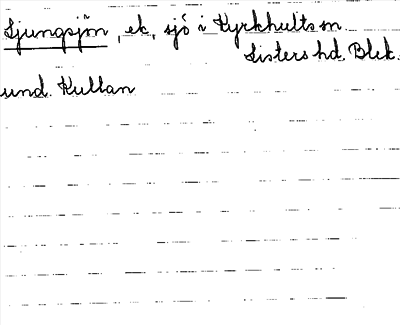 Ljungsjön, ek, sjö i Kyrkhults sn
Listers hd. Blek.
und. Kullan